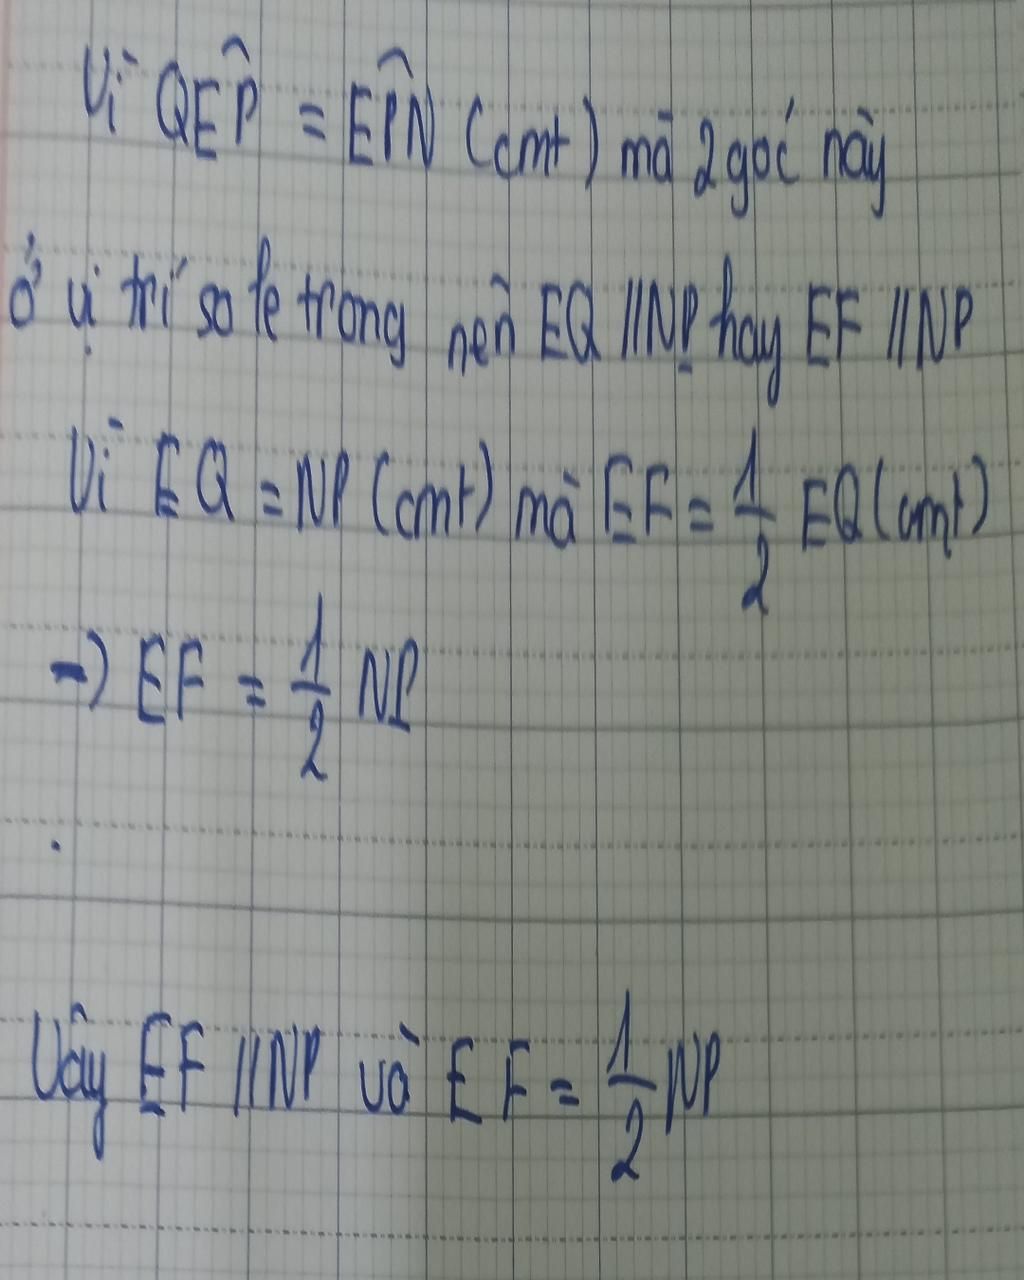 Vì QEP̂ = EP̂N (cmt) mà 2 góc này
ở vị trí so le trong nên EQ // NP hay EF // NP
Vì EQ = NP (cmt) mà EF = 1/2 EQ (cmt)
→ EF = 1/2 NP
Vậy EF // NP và EF = 1/2 NP